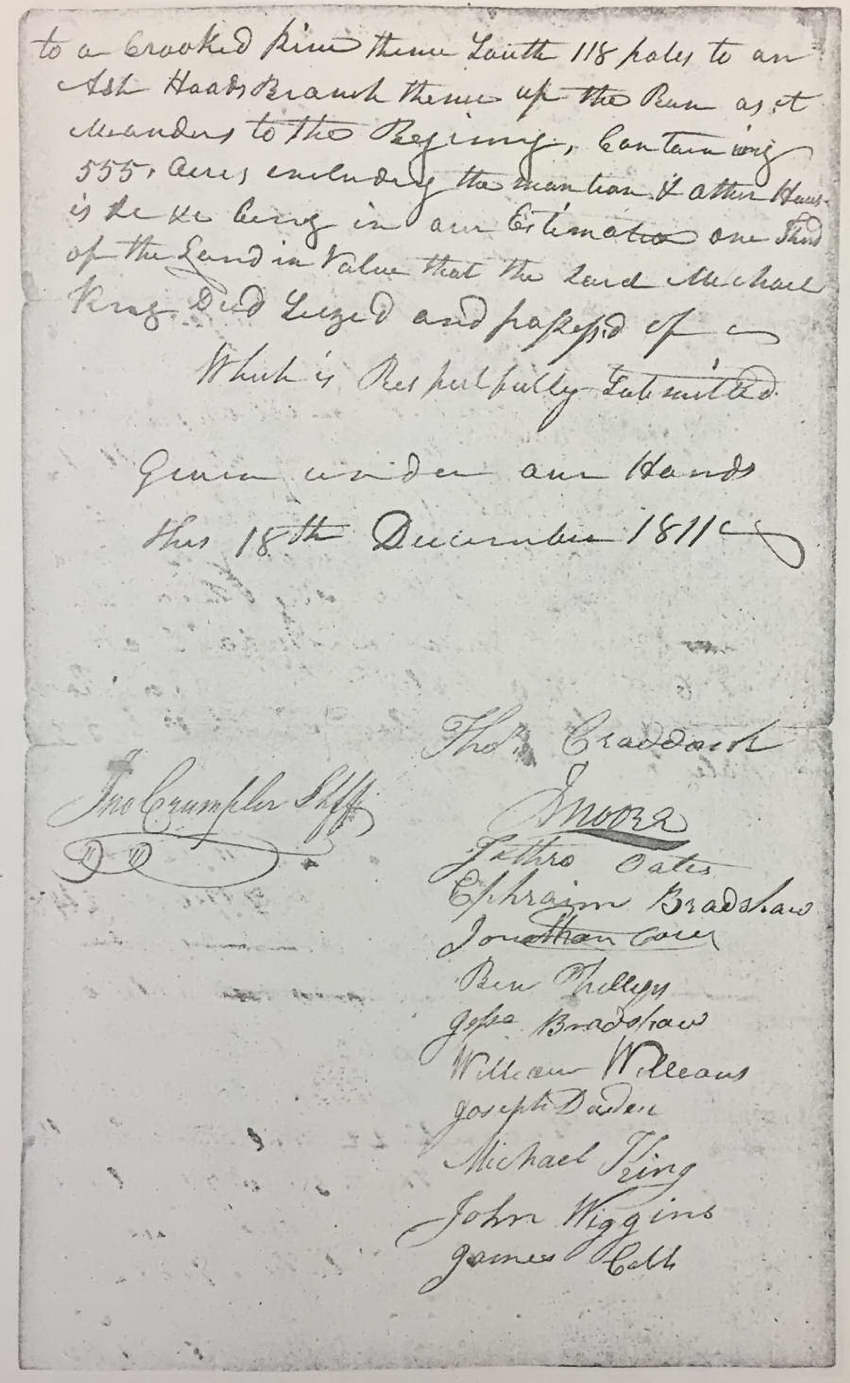 to a Crooked pine thence South 118 poles to an
Ash Hoods Branch thence up the Run as it
Meanders to the Begining, Containing
555, Acres including the mantion & other Hous-
is &c &c being in our Estimation one Third
of the Land in Value that the said Michael
King Died Seized and possessd of
Which is Respectfully Submitted
Given under our Hands
this 18th December 1811
Thos. Craddock
Jno Crumpler Shff
J Moore
Jethro Oates
Ephraim Bradshaw
Jonathan
Ben Phillips
Jesse Bradshaw
William Williams
Joseph Darden
Michael King
John Wiggins
James Cobb